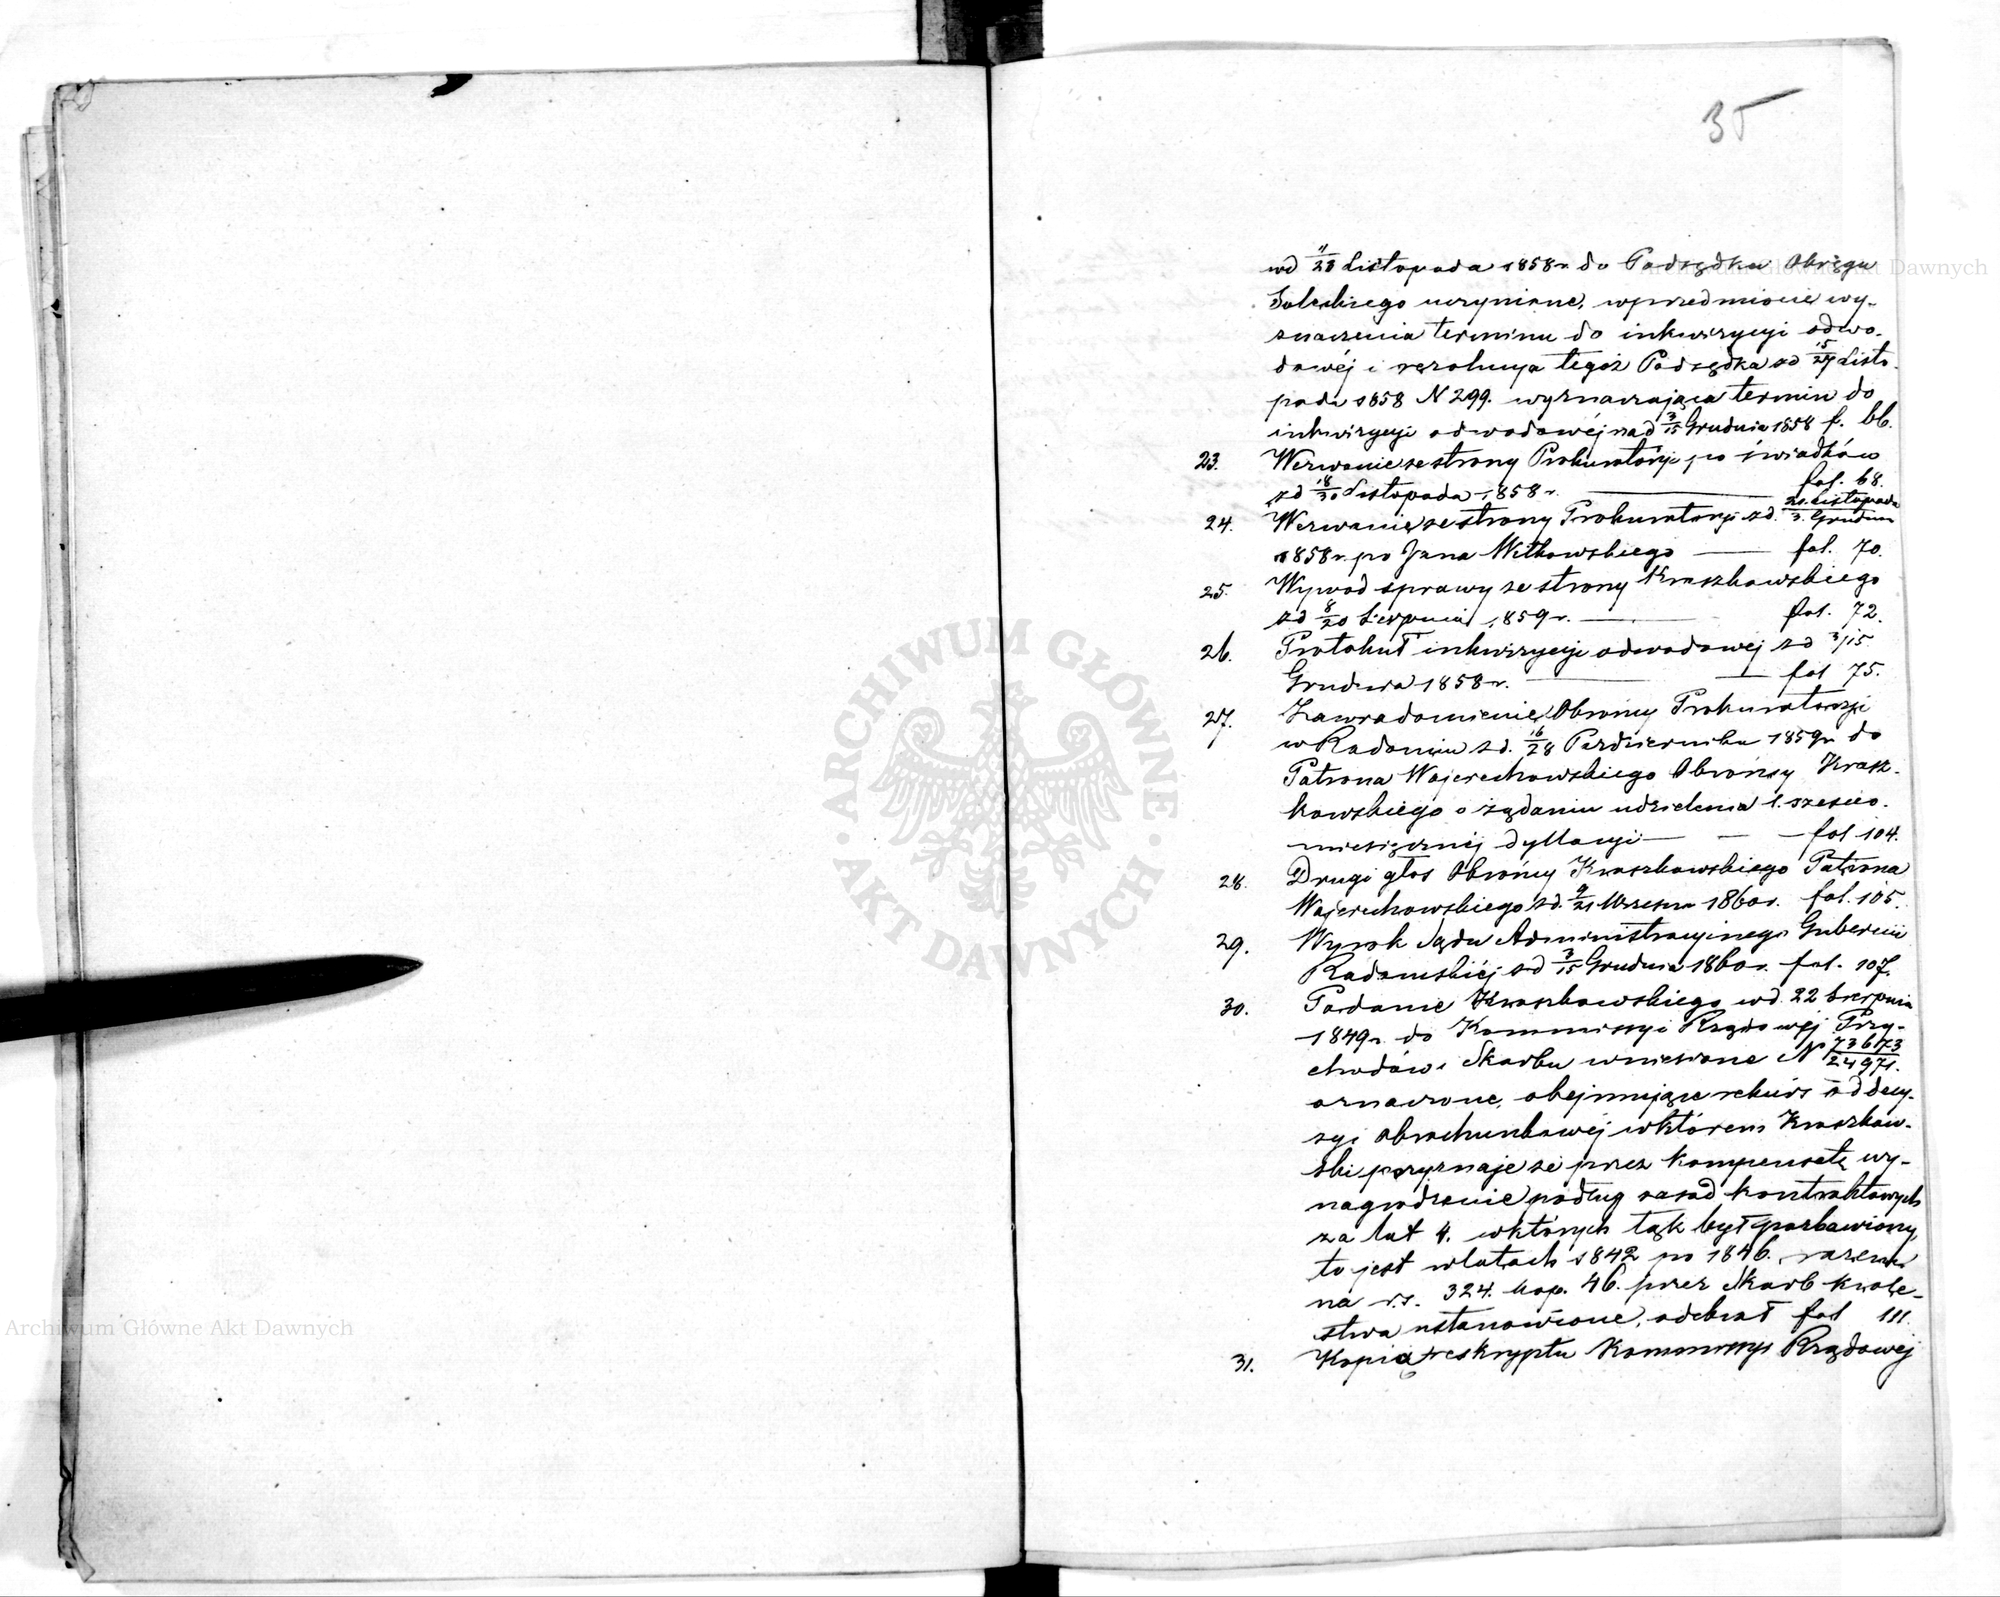 35
wd 11/23 Listopada 1858 r. do Podsędka Okręgu
Soleckiego uczynione, wprzedmiocie wy-
znaczenia terminu do inkwizycyi odwo-
dowéj i rezolucya tegoż Podsędka od 15/27 Listo-
pada 1858 N 299. wyznaczająca termin do
inkwizycyi odwodowéj nad 3/15 Grudnia 1858 f. 66.
23. Wezwanie ze strony Prokuratoryi po świadków
zd 18/30 Listopada 1858 r. — fol. 68.
24. Wezwanie ze strony Prokuratoryi zd. 21 Listopada/3. Grudnia
1858 r. po Jana Witkowskiego — fol. 70.
25. Wywod sprawy ze strony Kraszkowskiego
zd 8/20 Sierpnia 1859 r. — fol. 72.
26. Protokuł inkwizycyi odwodowej zd 3/15
Grudnia 1858 r. — fol 75.
27. Zawiadomienie Obrońcy Prokuratoryi
w Radomiu zd. 16/28 Października 1859 r. do
Patrona Wojciechowskiego Obrońcy Krasz-
kowskiego o żądaniu udzielenia 1. sześcio-
miesięcznéj dyllacyi — — — fol 104.
28. Drugi głos Obrońcy Kraszkowskiego Patrona
Wojciechowskiego zd. 9/21 Września 1860 r. fol. 105.
29. Wyrok Sądu Administracyjnego Gubernii
Radomskiéj zd 3/15 Grudnia 1860 r. fol. 107.
30. Podanie Kraszkowskiego wd. 22 Sierpnia
1849 r. do Kommissyi Rządowéj Przy-
chodów i Skarbu wniesione N 73673/24971.
oznaczone, obejmujące rekurs od decy-
zyi Obrachunkowéj wktórem Kraszkow-
ski przyznaje że przez kompensatę wy-
nagrodzenie podług zasad kontraktowych
za lat 4. wktórych łąk był pozbawiony
to jest wlatach 1842 po 1846. razem
na r.s. 324. kop. 46. przez Skarb Króle-
stwa ustanowione, odebrał fol 111.
31. Kopia reskryptu Kommissyi Rządowej
ARCHIWUM GŁÓWNE · AKT DAWNYCH ·
Archiwum Główne Akt Dawnych
Archiwum Główne Akt Dawnych